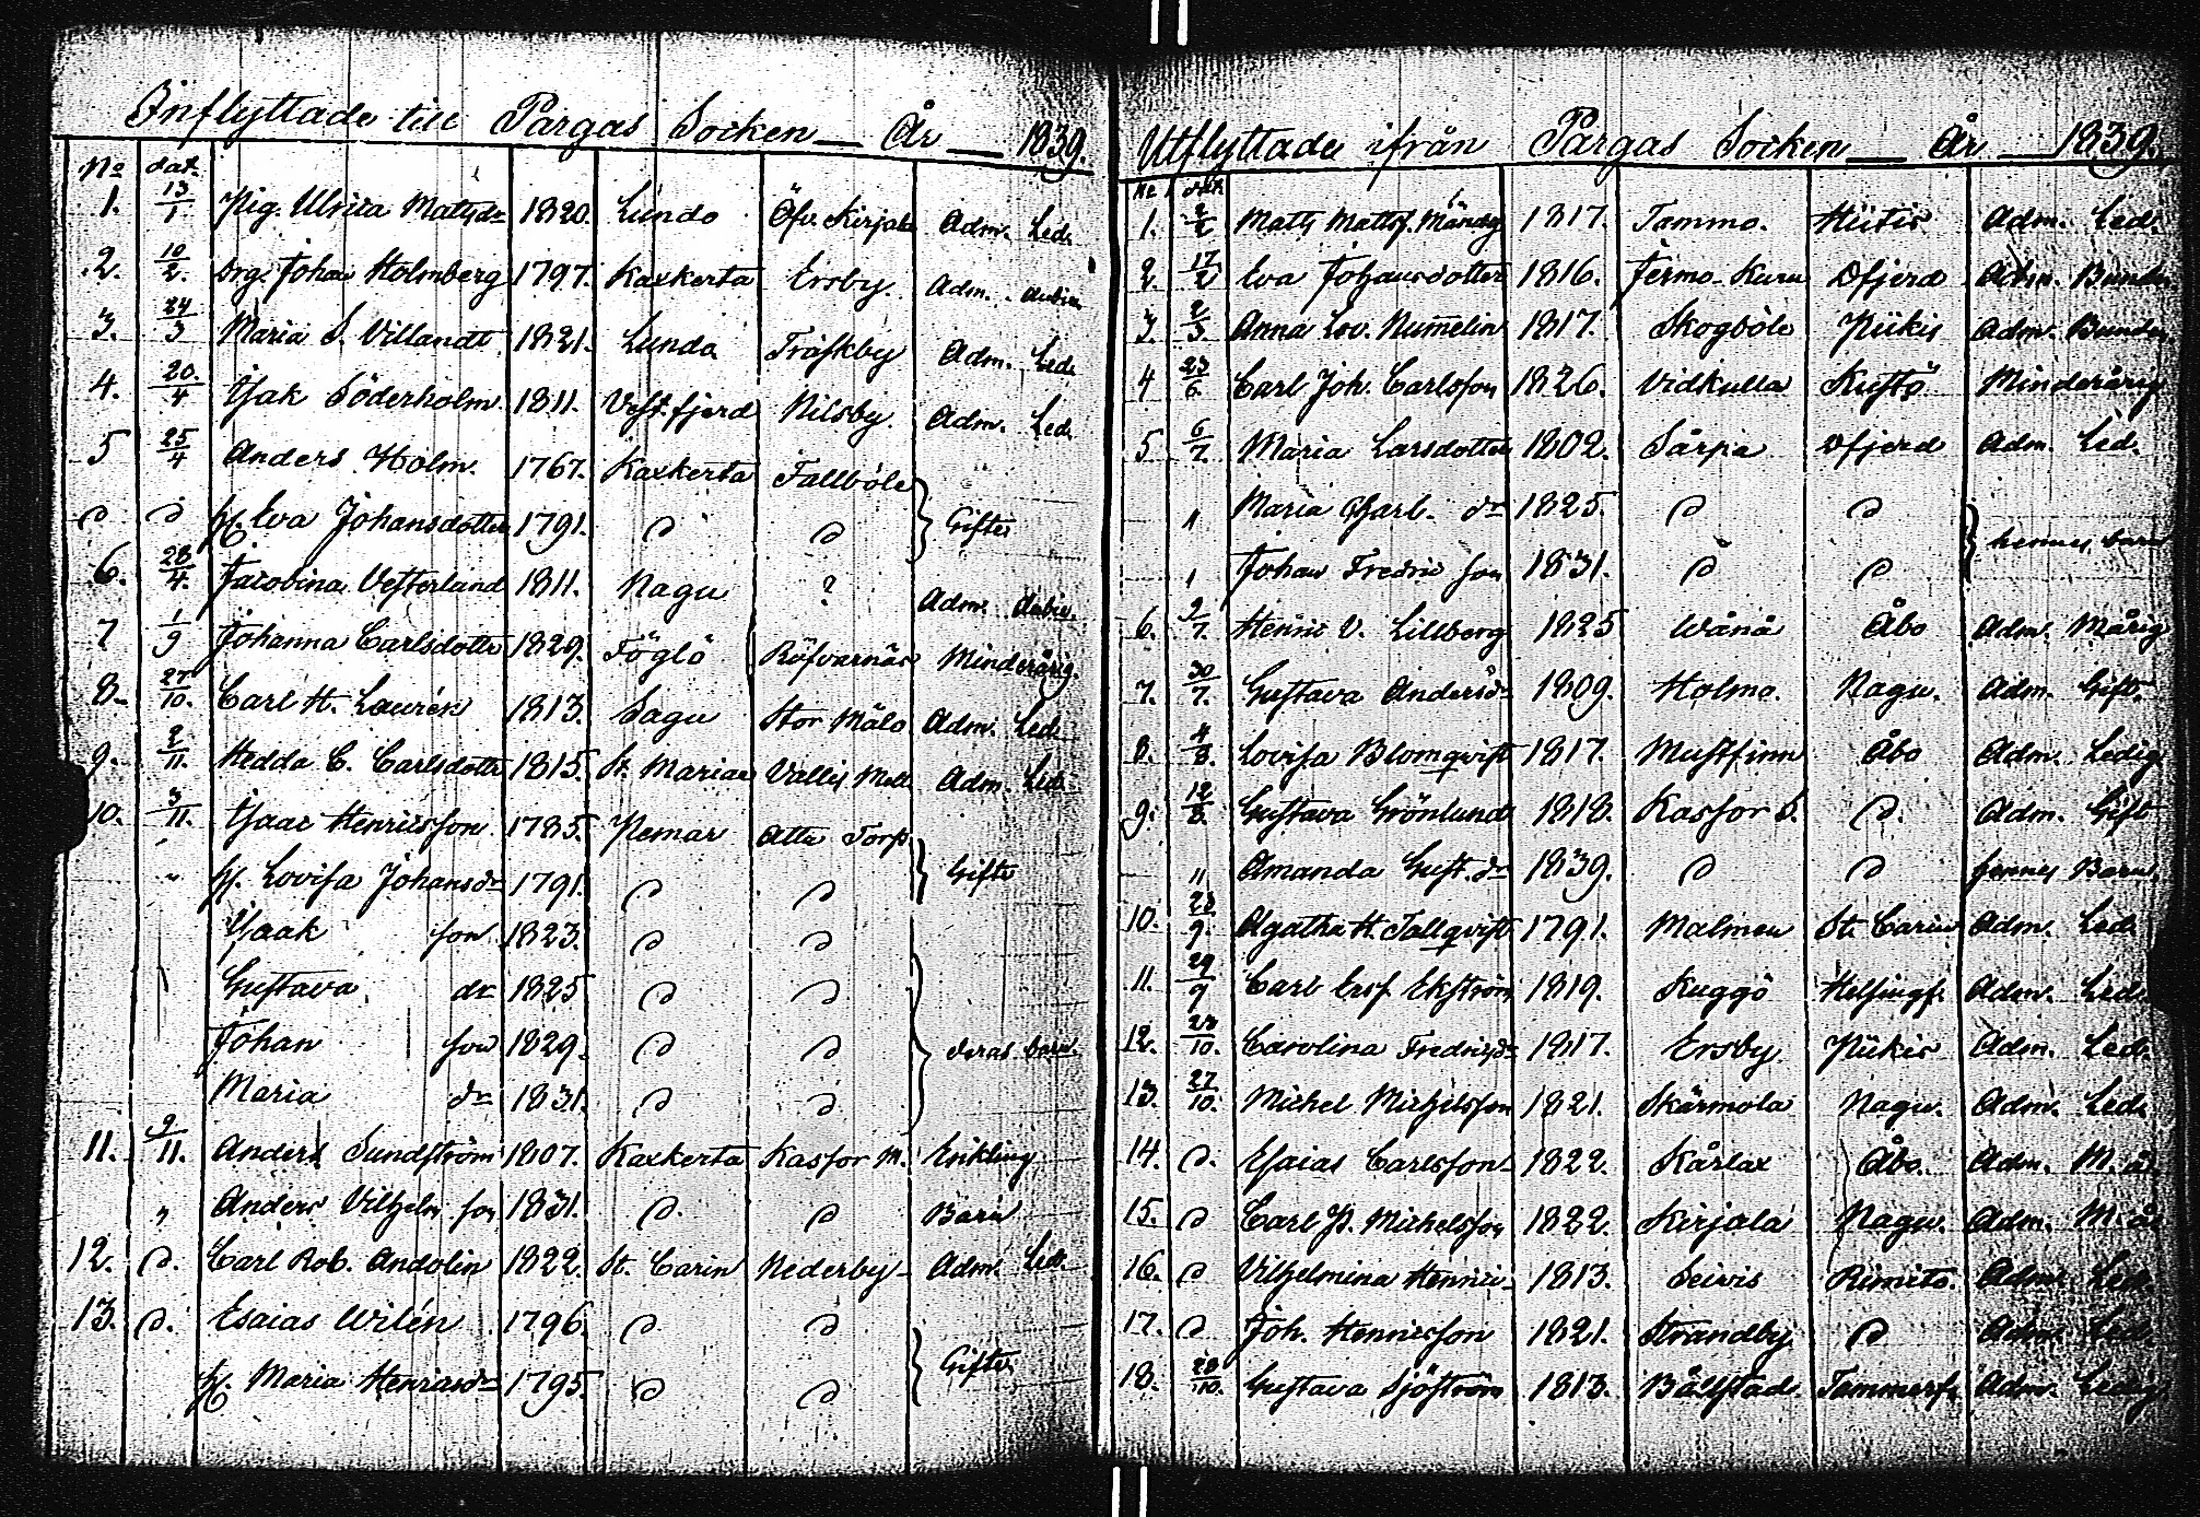 Inflyttade till Pargas Socken — År — 1839.
No dat.
1. 13/1 Pig. Ulrica Matsdr 1820. Lundo Öfv. Kirjala Adm. Led.
2. 10/2. Drg. Johan Holmberg 1797. Kaxkerta Ersby. Adm.
3. 24/3 Maria S. Villandt 1821. Lundo Träskby Adm. Led.
4. 20./4 Isak Söderholm. 1811. Vestfjerd Nilsby. Adm. Led.
5 25/4 Anders Holm. 1767. Kaxkerta Fallböle
D D h. Eva Johansdotter 1791. D D Gifte
6. 28/4. Jacobina Vesterlund 1811. Nagu ? Adm.
7 1/9 Johanna Carlsdotter 1829. Föglö Röfvarnäs Minderårig.
8. 27/10. Carl H. Laurén 1813. Sagu Stor Mälo Adm. Led.
9. 2/11. Hedda C. Carlsdotter 1815. St. Mariae Vallis Mall Adm. Led.
10. 3/11. Isaac Henricsson. 1785. Pemar Attu Torp
" h. Lovisa Johansdr 1791. D D Gifte
Isaak son 1823. D D
Gustava dr 1825 D D
Johan son 1829. D D deras barn.
Maria dr 1831. D D
11. 9/11. Anders Sundström 1807. Kaxkerta Kasfor M. Enkling
" Anders Vilhelm son 1831. D. D Barn
12. D. Carl Rob. Andolin 1822. St. Carin Nederby Adm. Led.
13. D. Esaias Wilén 1796. D. D
h. Maria Henricsdr 1795. D D Gifte
Utflyttade ifrån Pargas Socken — År — 1839.
No dat.
1. 2/2 Matts Mattss. 1817. Tammo. Hiitis Adm. Led.
2. 17/2 Eva Johansdotter 1816. Jermo-Kuru Ofjerd Adm. Bunden
3. 2/3 Anna Lov. Numelin 1817. Skogböle Piikis Adm. Bunden.
4 23/6. Carl Joh. Carlsson 1826. Vidkulla Kustö Minderårig
5 6/7. Maria Larsdotter 1802. Särpia Ofjerd Adm. Led.
" Maria Charl. dr 1825. D D
" Johan Fredric son 1831. D D hennes barn
6. 9/7. Henric V. Lillberg 1825 Wånå Åbo Adm. Mårig
7. 30/7. Gustava Andersdr 1809. Holmo. Nagu. Adm. Gift.
8. 4/8. Lovisa Blomqvist 1817. Mustfinn Åbo Adm. Ledig
9. 12/8. Gustava Grönlund 1818. Kasfor S. D. Adm. Gift
" Amanda Gust. dr 1839. D D hennes Barn.
10. 23./9. Agatha H. Tallqvist 1791. Malmen St. Carin Adm. Led.
11. 29/9 Carl Ersf. Ekström 1819. Kuggö Helsingf. Adm. Led.
12. 24/10. Carolina Fredricsdr 1817. Ersby. Piikis Adm. Led.
13. 27/10. Michel Michelsson 1821. Skärmola Nagu. Adm. Led.
14. D. Esaias Carlsson 1822. Kårlax Åbo. Adm. M. å.
15. D Carl P. Michelsson 1822. Kirjala Nagu. Adm. M. å.
16. D Vilhelmina Henric- 1813. Seivis Rimito. Adm. Led.
17. D Joh. Henricsson 1821. Strandby D Adm. Led.
18. 28/10. Gustava Sjöström 1813. Bålstad Tammerfs. Adm. Ledig